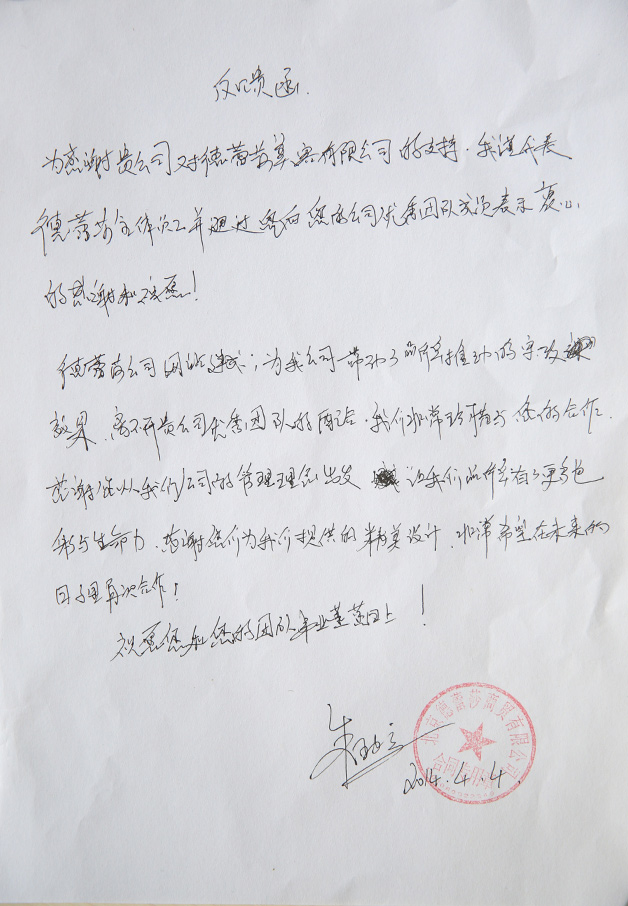 反馈贵函.
为感谢贵公司对德蕾莎有限公司的支持.我谨代表
德蕾莎全体员工并通过您向贵公司优秀团队成员表示衷心
的感谢和祝愿!
德蕾莎公司网站,为我公司带动了品牌推动的
效果.离不开贵公司优秀团队的配合.我们非常珍惜与您的合作.
感谢您从我们公司的管理理念出发 让我们品牌有了更多色
彩与生命力.感谢您们为我们提供的精美设计.非常希望在未来的
日子里再次合作!
祝愿您和您的团队事业蒸蒸日上!
朱
2014.4.4.
北京德蕾莎商贸有限公司
合同专用章